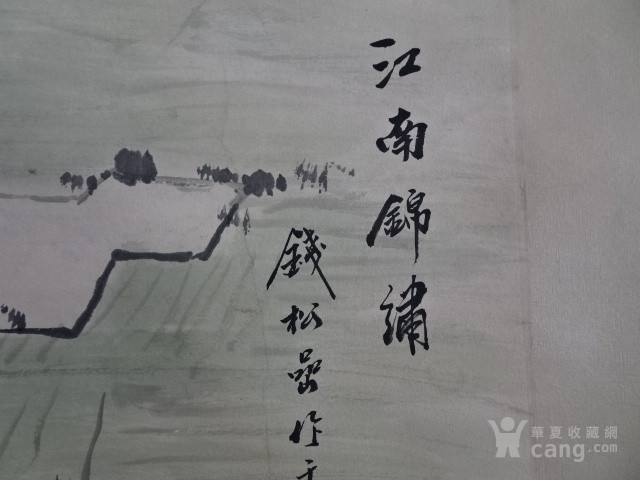 江南錦繡
錢松喦作于
華夏收藏網
cang.com